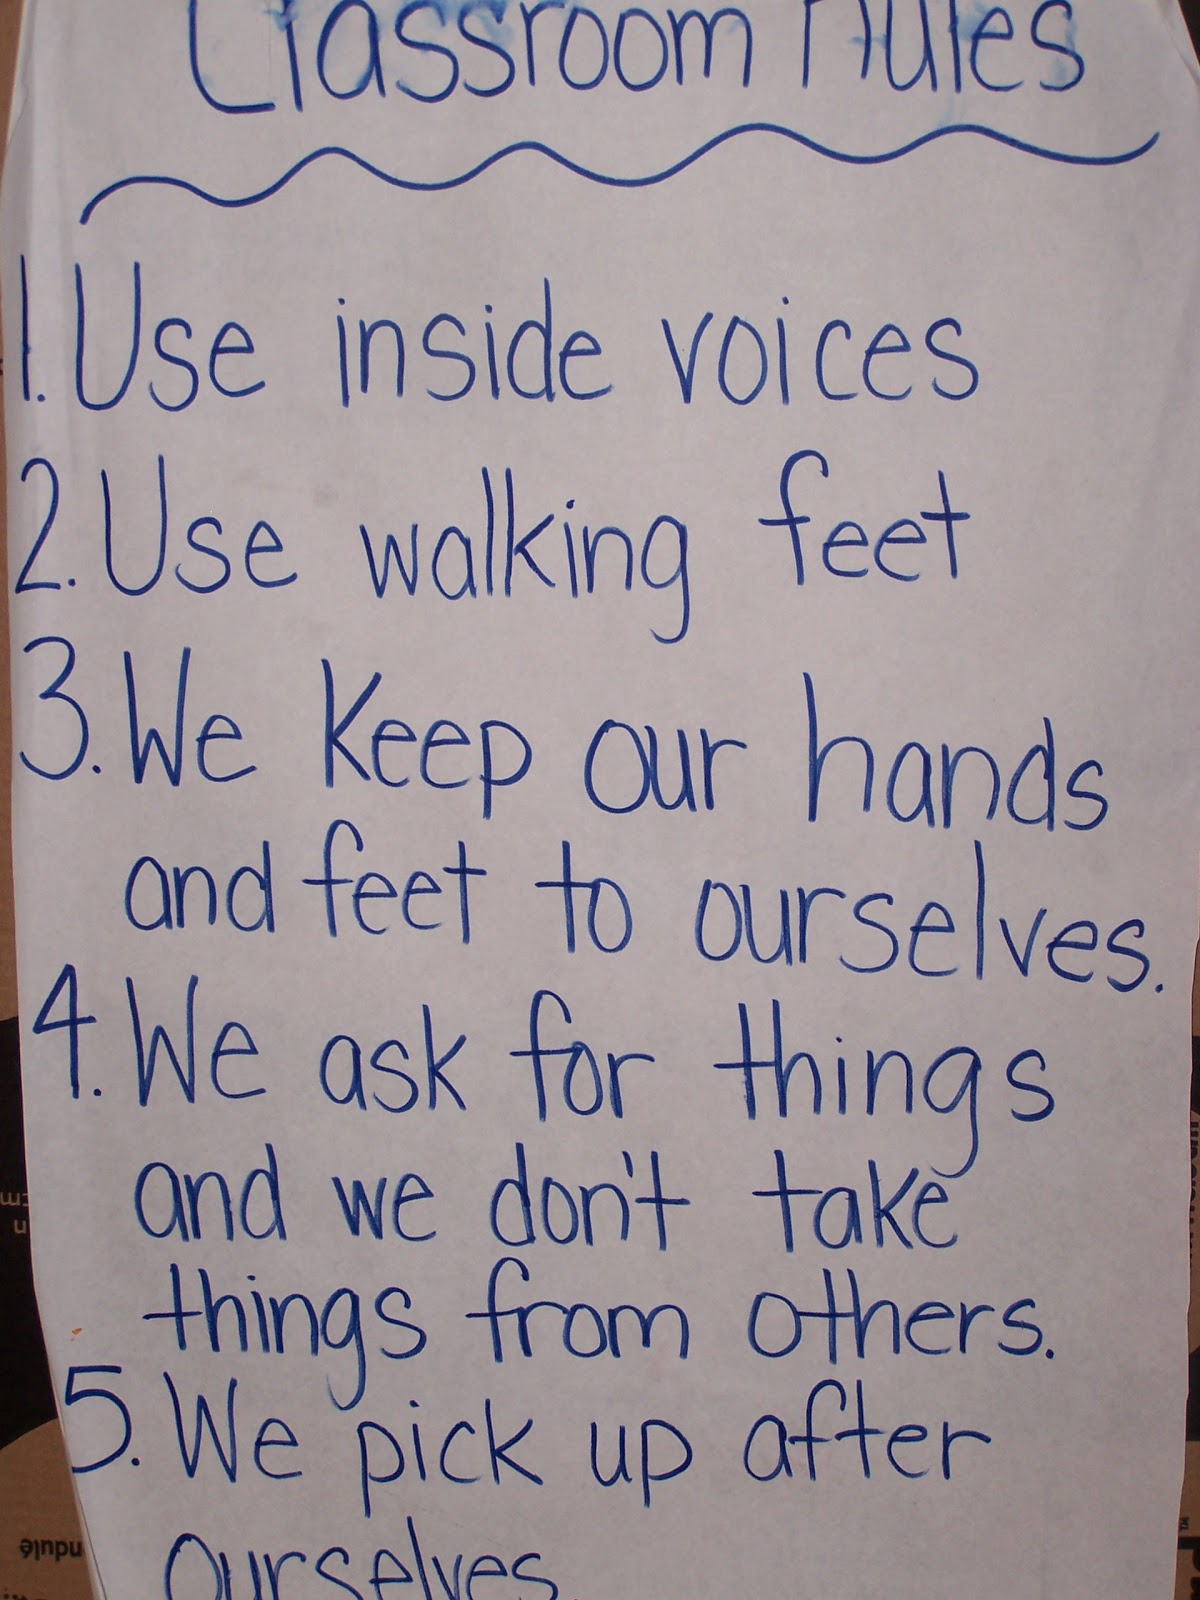 Classroom Rules
1. Use inside voices
2. Use walking feet
3. We Keep our hands
and feet to ourselves.
4. We ask for things
and we don't take
things from others.
5. We pick up after
ourselves.